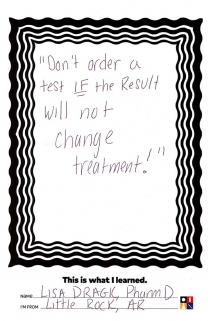 "Don't order a
test IF the Result
will not
change
treatment!"
This is what I learned.
NAME: LISA DRAGIC, PharmD
I'M FROM: Little Rock, AR